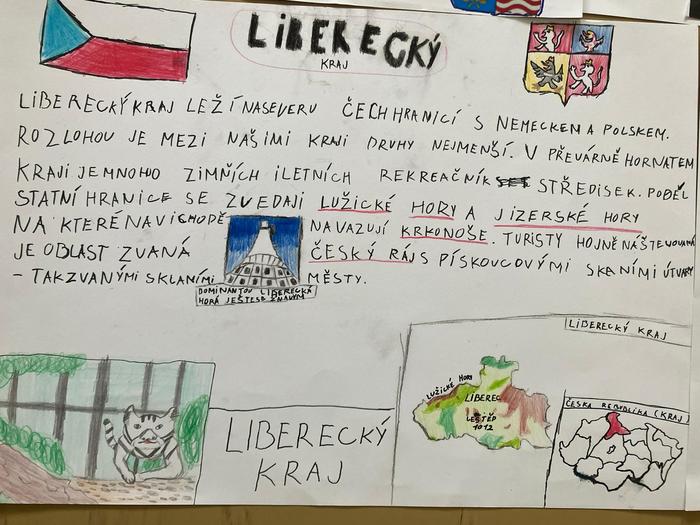 LIBERECKÝ
KRAJ
LIBERECKÝ KRAJ LEŽÍ NASEVERU ČECH HRANICÍ S NEMECKEN A POLSKEM.
ROZLOHOU JE MEZI NAŠIMI KRAJI DRUHY NEJMENŠÍ. V PŘEVÁRNĚ HORNATEM
KRAJI JE MNOHO ZIMŇÍCH ILETNÍCH REKREAČNÍK STŘEDISEK. PODĚL
STATNÍ HRANICE SE ZVEDAJI LUŽICKÉ HORY A JIZERSKÉ HORY
NA KTERÉ NAVICHODĚ NAVAZUJÍ KRKONOŠE. TURISTY HOJNĚ NÁŠTEVOVANÁ
JE OBLAST ZVANÁ ČESKÝ RÁJ S PÍSKOVCOVÝMI SKANÍMI ÚTVARY
- TAKZVANÝMI SKLANÍMI MĚSTY.
DOMINANTOU LIBERECKA
HORA JEŠTE SE ZNAVÝM
LIBERECKÝ
KRAJ
LIBERECKÝ KRAJ
LUŽICKÉ HORY
LIBEREC
JEŠTĚP
1012
ČESKA REPUBLIKA (KRAJ)